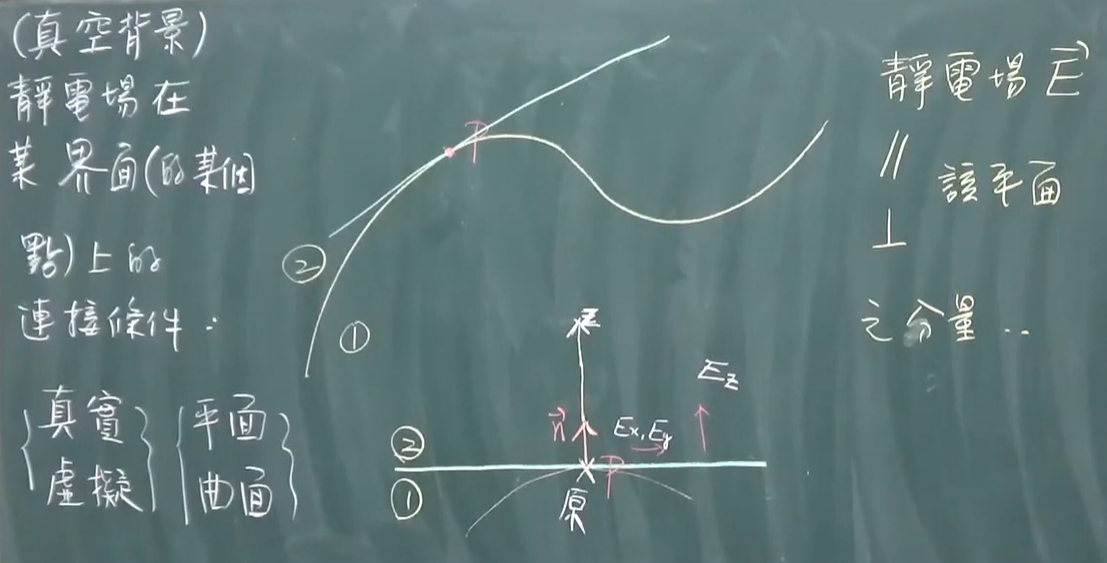 (真空背景)
靜電場在
某界面(的某個
點)上的
連接條件:
{真實 虛擬} {平面 曲面}
P
②
①
z
Ez
n⃗
Ex, Ey
②
P
①
原
靜電場 E⃗
// 該平面
⊥
之分量..